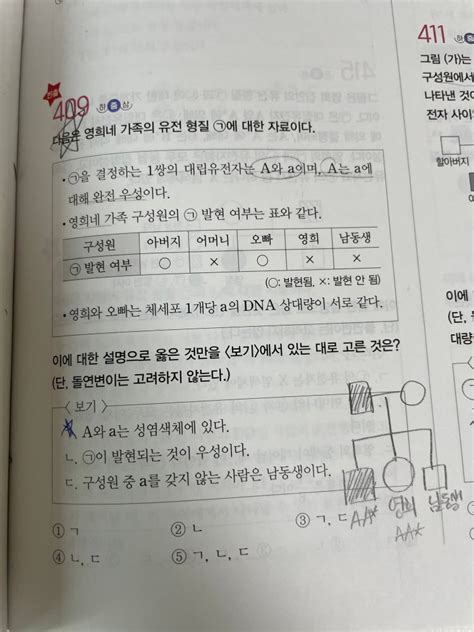 409 하 중 상
다음은 영희네 가족의 유전 형질 ㉠에 대한 자료이다.
• ㉠을 결정하는 1쌍의 대립유전자는 A와 a이며, A는 a에
대해 완전 우성이다.
• 영희네 가족 구성원의 ㉠ 발현 여부는 표와 같다.
구성원 아버지 어머니 오빠 영희 남동생
㉠ 발현 여부 ○ × ○ × ×
(○: 발현됨, ×: 발현 안 됨)
• 영희와 오빠는 체세포 1개당 a의 DNA 상대량이 서로 같다.
이에 대한 설명으로 옳은 것만을 <보기>에서 있는 대로 고른 것은?
(단, 돌연변이는 고려하지 않는다.)
<보기>
A와 a는 성염색체에 있다.
ㄴ. ㉠이 발현되는 것이 우성이다.
ㄷ. 구성원 중 a를 갖지 않는 사람은 남동생이다.
① ㄱ ② ㄴ ③ ㄱ, ㄷ
④ ㄴ, ㄷ ⑤ ㄱ, ㄴ, ㄷ
영희 남동생
411 하 중
그림 (가)는
구성원에서
나타낸 것이
전자 사이
할아버지
이에
(단,
대량